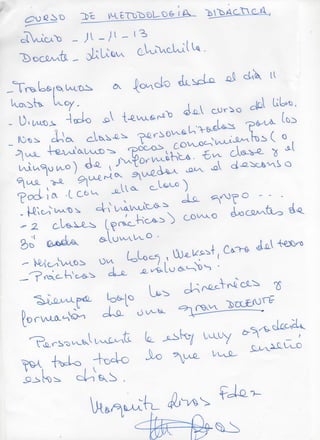 CURSO DE METODOLOGÍA DIDÁCTICA.
Inicio - 11-11-13
Docente - Lilian Chinchilla.
- Trabajamos a fondo desde el día 11
hasta hoy.
- Vimos todo el temario del curso del libro.
- Nos dia clases personalizadas para los
que teníamos pocos conocimientos (o
ninguno) de, informática. En clase y el
que se quería quedar en el descanso
podía (con ella claro)
- Hicimos dinámicas de grupo ...
- 2 clases (prácticas) como docentes de
alumno.
- Hicimos un blocs, Wekast, Caza del tesoro
- Prácticas de evaluación.
Siempre bajo las directrices y
formación de una gran DOCENTE
Personalmente le estoy muy agradecida
por todo todo lo que me enseñó
estos días.
Margarita Rivas Fdez